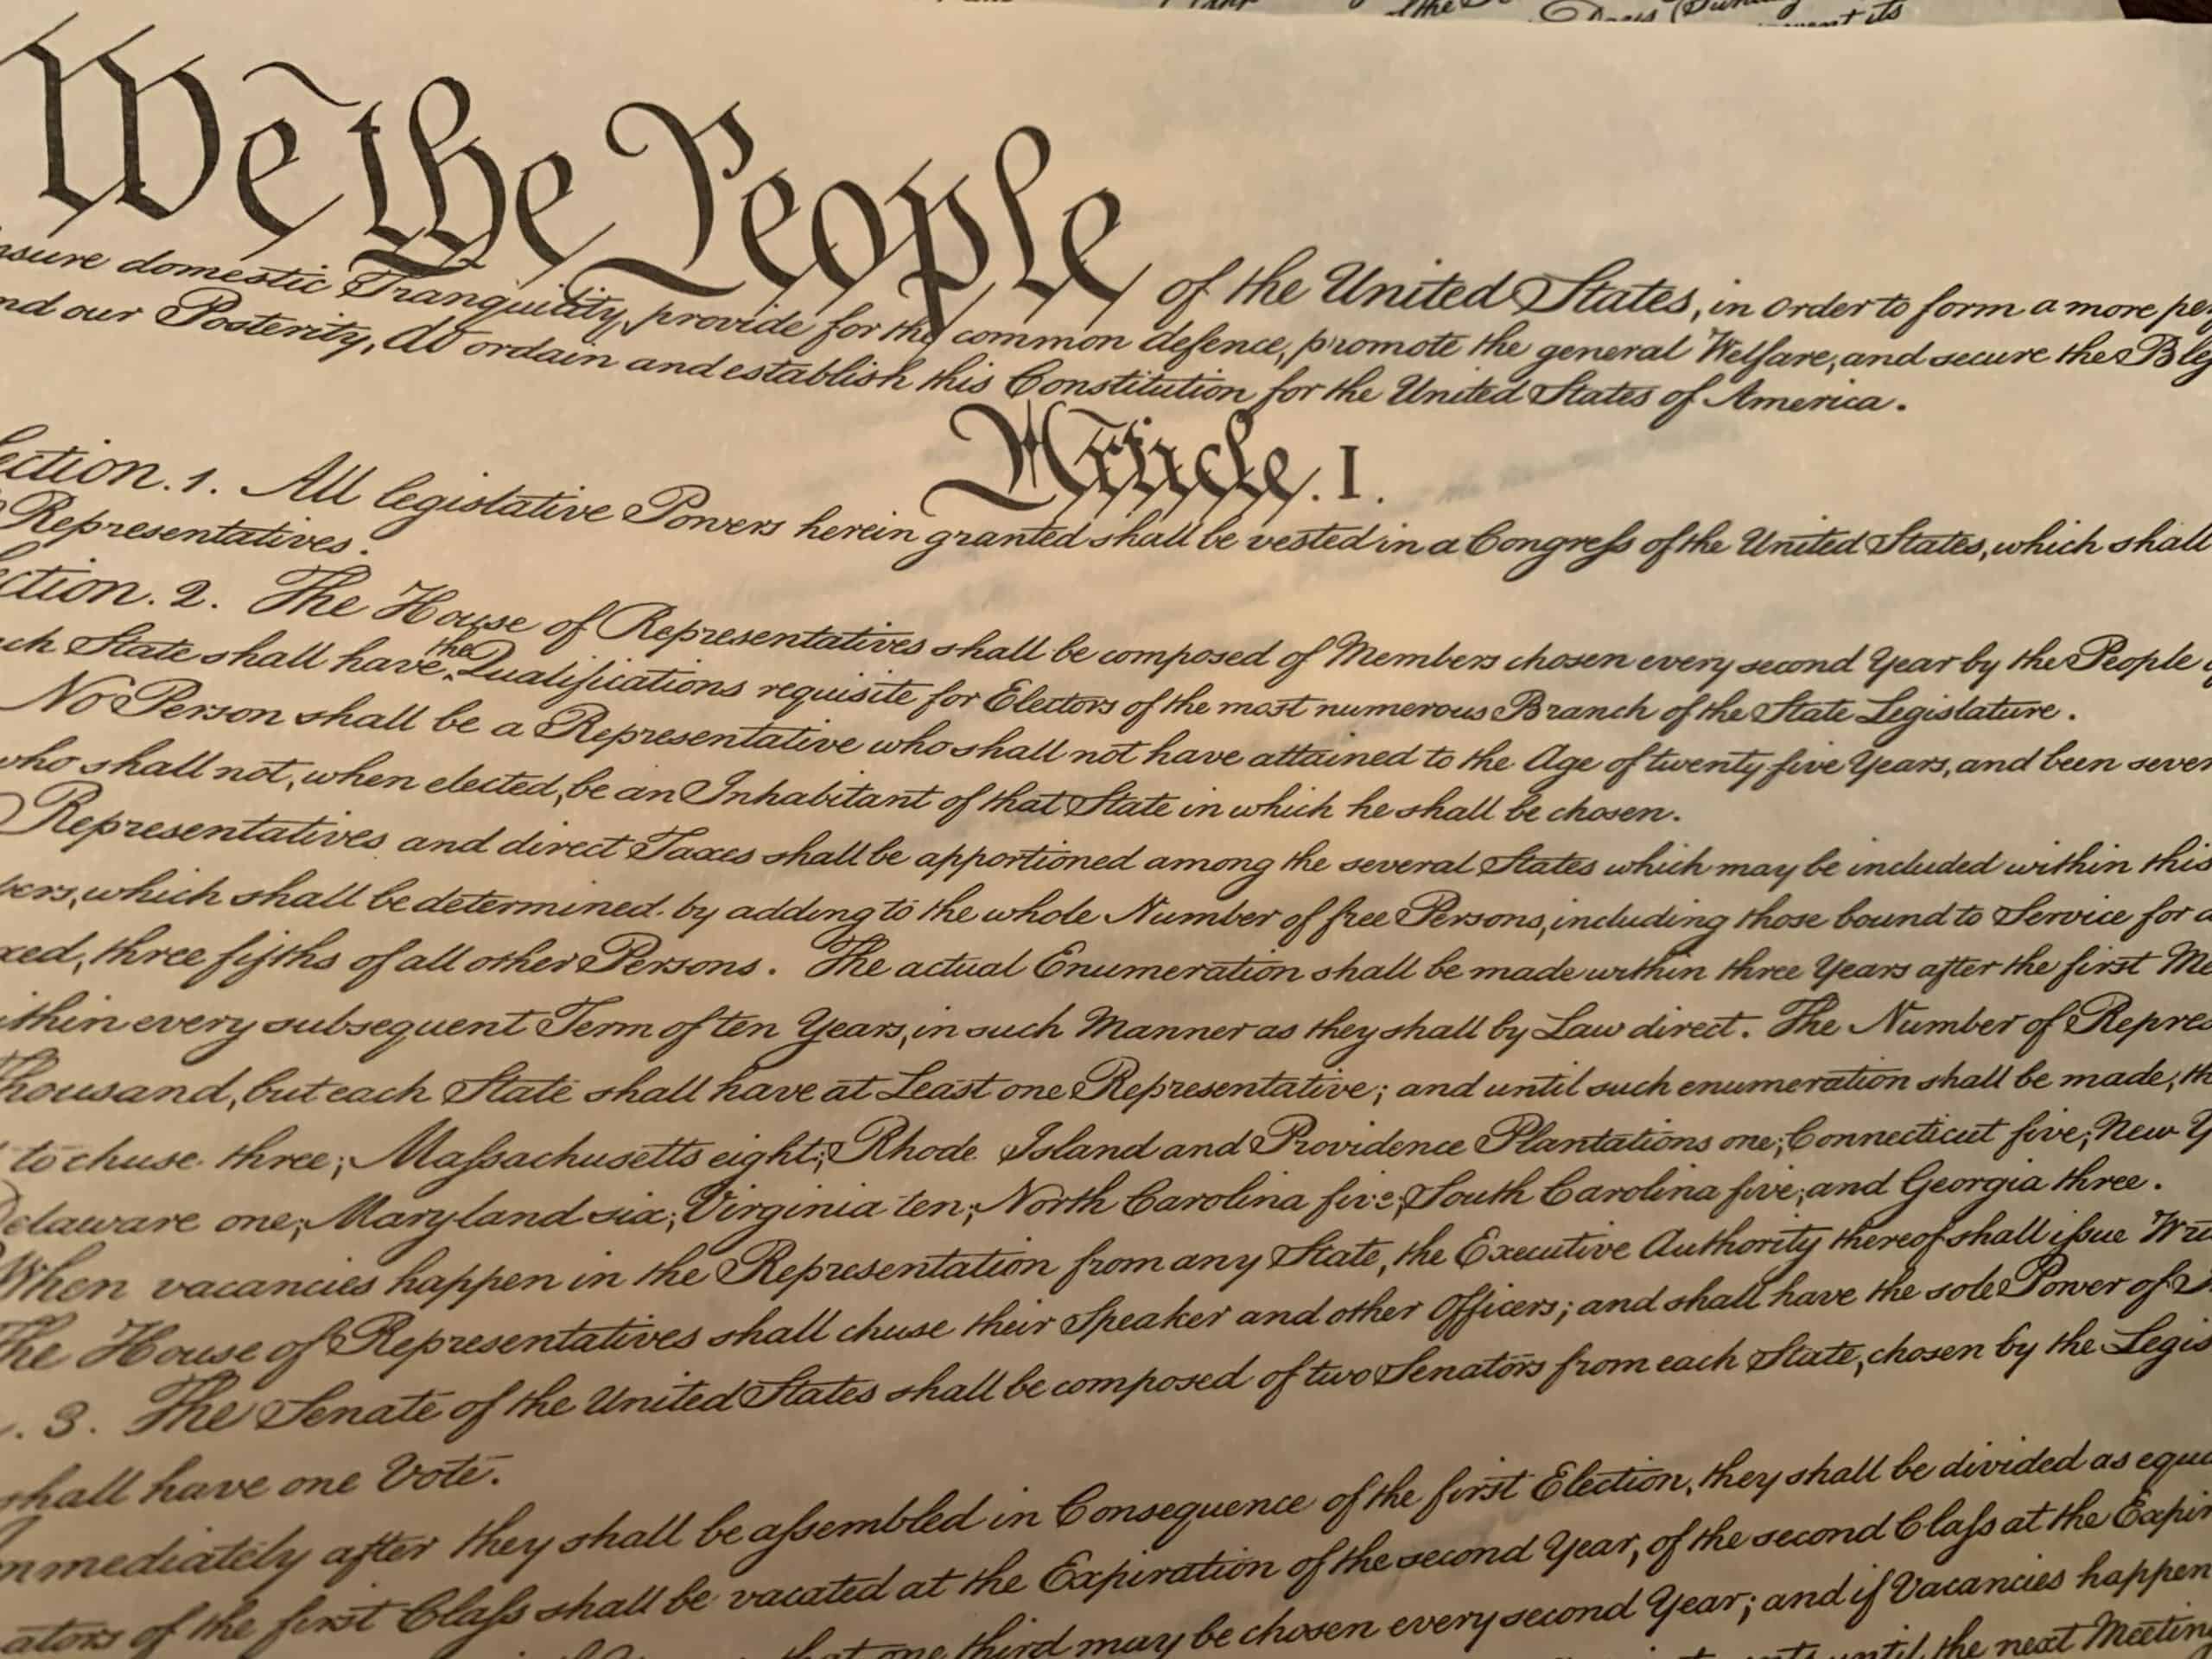 the
Days (Sunday
prevent its
We the People of the United States, in order to form a more per
nsure domestic Tranquility, provide for the common defence, promote the general Welfare, and secure the Bles
nd our Posterity, do ordain and establish this Constitution for the United States of America.
Article. I.
ection. 1. All legislative Powers herein granted shall be vested in a Congreſs of the United States, which shall
Representatives.
ction. 2. The House of Representatives shall be composed of Members chosen every second Year by the People
ch State shall have the Qualifications requisite for Electors of the most numerous Branch of the State Legislature.
No Person shall be a Representative who shall not have attained to the Age of twenty five Years, and been seven
who shall not, when elected, be an Inhabitant of that State in which he shall be chosen.
Representatives and direct Taxes shall be apportioned among the several States which may be included within this
bers, which shall be determined by adding to the whole Number of free Persons, including those bound to Service for a
xed, three fifths of all other Persons. The actual Enumeration shall be made within three Years after the first Me
ithin every subsequent Term of ten Years, in such Manner as they shall by Law direct. The Number of Repres
Thousand, but each State shall have at Least one Representative; and until such enumeration shall be made, th
to chuse three, Maſsachusetts eight, Rhode Island and Providence Plantations one, Connecticut five, New-Y
Delaware one, Maryland six, Virginia ten, North Carolina five, South Carolina five, and Georgia three.
When vacancies happen in the Representation from any State, the Executive Authority thereof shall iſsue Wri
The House of Representatives shall chuse their Speaker and other Officers; and shall have the sole Power of I
. 3. The Senate of the United States shall be composed of two Senators from each State, chosen by the Legis
shall have one Vote.
mmediately after they shall be aſsembled in Consequence of the first Election, they shall be divided as equa
ators of the first Claſs shall be vacated at the Expiration of the second Year, of the second Claſs at the Expir
that one third may be chosen every second Year; and if Vacancies happen
until the next Meeting